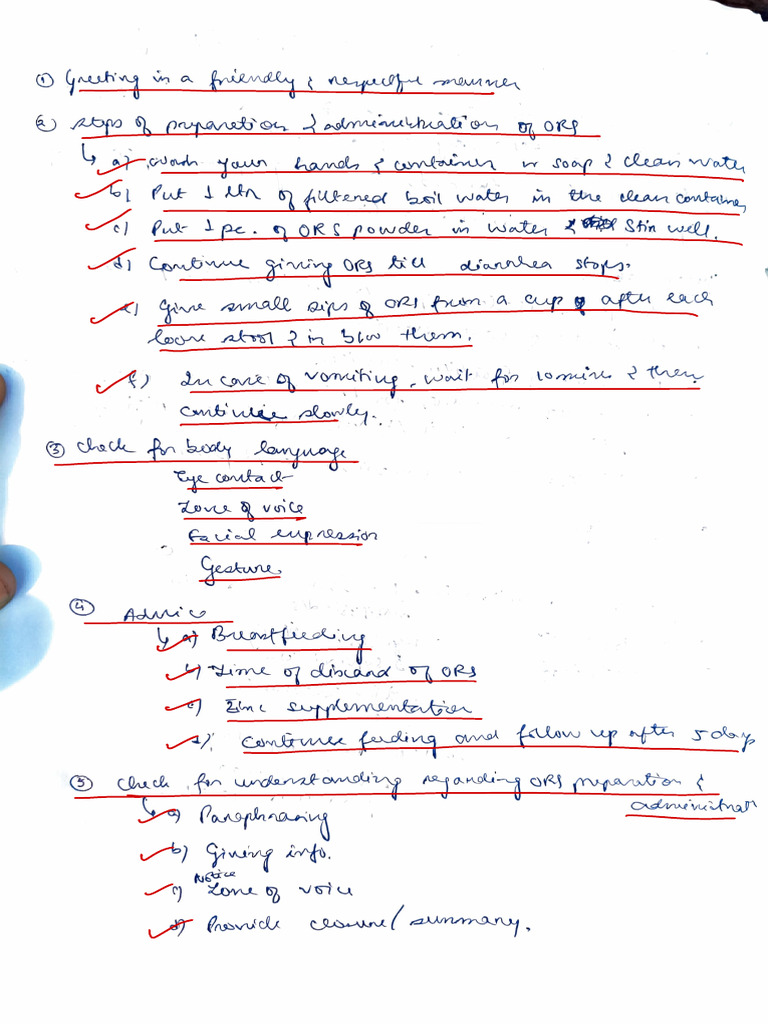 ① Greeting in a friendly & respectful manner
② Steps of preparation & administration of ORS
↳ a) wash your hands & container w soap & clean water
b) Put 1 ltr of filtered boil water in the clean container
c) Put 1 pc. of ORS powder in water & Stir well.
d) Continue giving ORS till diarrhea stops.
e) Give small sips of ORS from a cup after each
loose stool & in b/w them.
f) In case of vomiting, wait for 10 mins & then
continue slowly.
③ Check for body language
Eye contact
Tone of voice
Facial expression
Gesture
④ Advice
↳ a) Breastfeeding
b) Time of discard of ORS
c) Zinc supplementation
d) Continue feeding and follow up after 5 days
⑤ Check for understanding regarding ORS preparation &
administrat
↳ a) Paraphrasing
b) Giving info.
Notice
c) Tone of voice
d) Provide closure/summary.